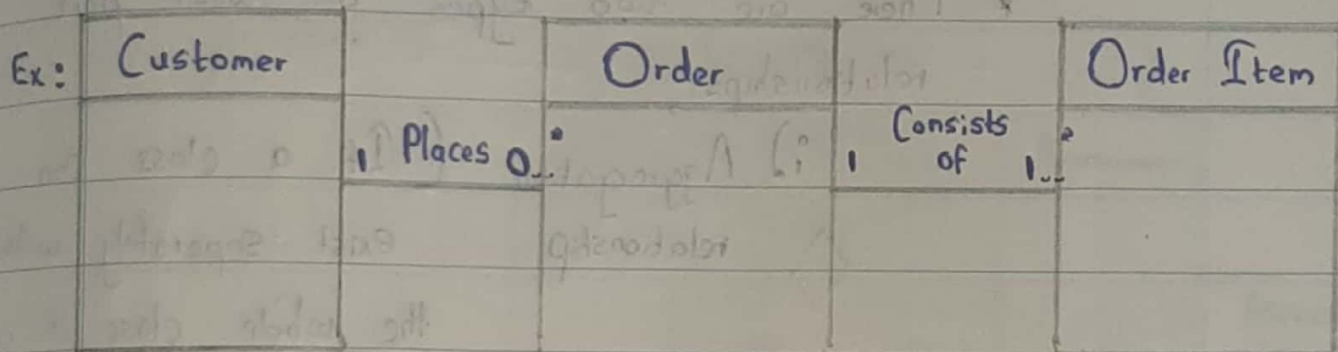 Ex: Customer Order Order Item
1 Places 0..* 1 Consists of 1..*